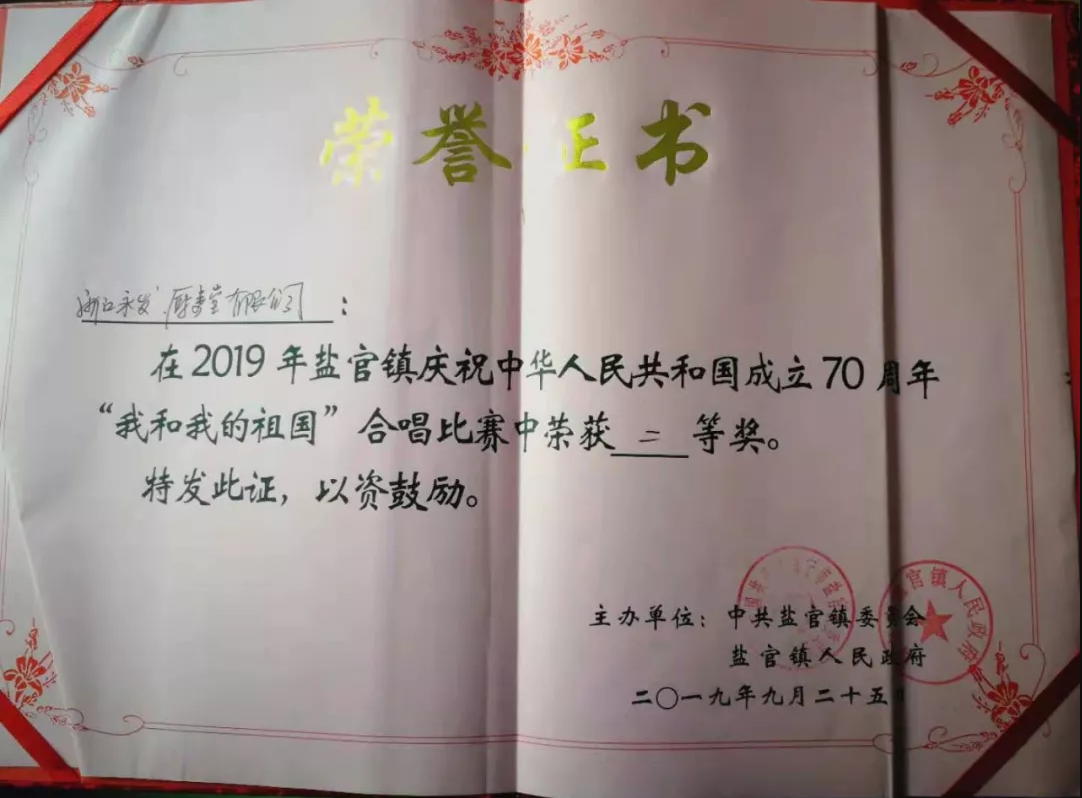 荣誉证书
浙江永发 有限公司:
在2019年盐官镇庆祝中华人民共和国成立70周年
“我和我的祖国”合唱比赛中荣获二等奖。
特发此证,以资鼓励。
主办单位:中共盐官镇委员会
盐官镇人民政府
二〇一九年九月二十五日
官镇人民政府